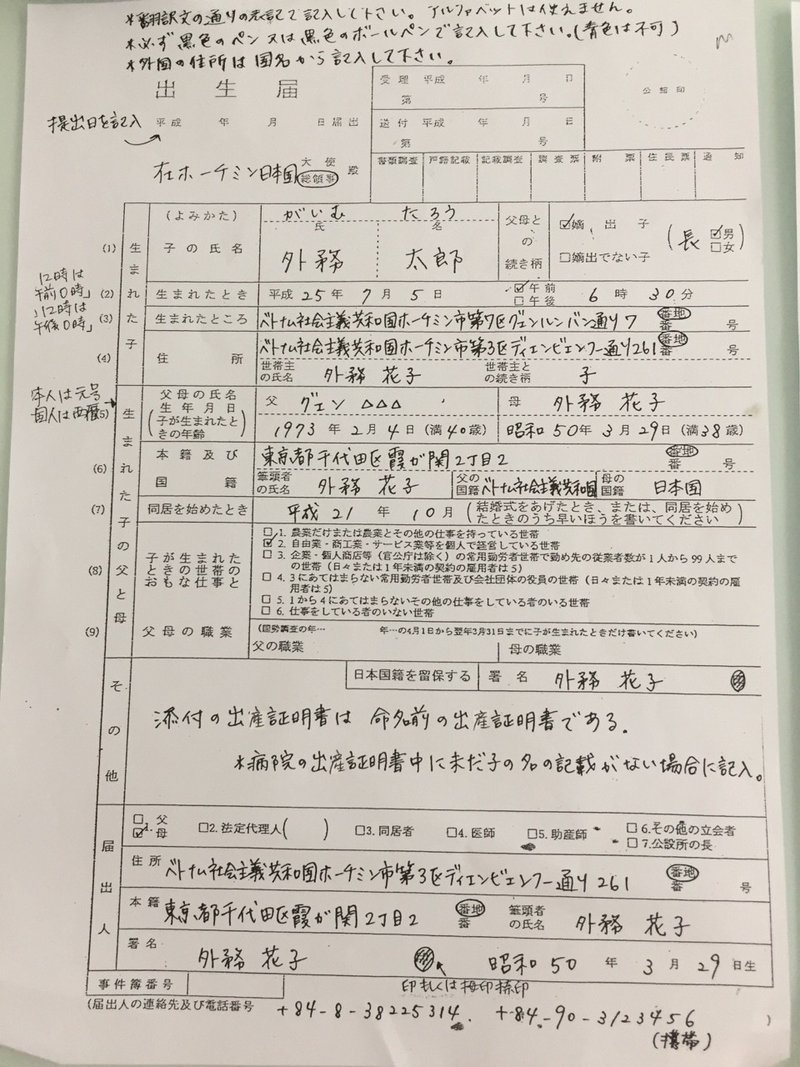 *翻訳文の通りの表記で記入して下さい。アルファベットは使えません。
*必ず黒色のペン又は黒色のボールペンで記入して下さい。(青色は不可)
*外国の住所は国名から記入して下さい。
出生届
受理 平成 年 月 日
第 号
公館印
提出日を記入
平成 年 月 日届出
送付 平成 年 月 日
第 号
在ホーチミン日本国 大使 総領事 殿
書類調査 戸籍記載 記載調査 調査票 附票 住民票 通知
(よみかた) がいむ たろう
氏 名
(1) 子の氏名 外務 太郎
父母との続き柄 ☑嫡出子 □嫡出でない子 (長 ☑男 □女)
12時は
午前0時」
12時は
午後0時」
(2) 生まれたとき 平成25年7月5日 ☑午前 □午後 6時30分
(3) 生まれたところ ベトナム社会主義共和国ホーチミン市第7区グェンルンバン通り7 番地 番 号
(4) 住所 ベトナム社会主義共和国ホーチミン市第3区ディエンビェンフー通り261 番地 番 号
世帯主の氏名 外務 花子 世帯主との続き柄 子
生まれた子
本人は元号
国人は西暦
(5) 父母の氏名 生年月日 (子が生まれたときの年齢)
父 グェン △△△ 母 外務 花子
1973年2月4日(満40歳) 昭和50年3月29日(満38歳)
(6) 本籍及び国籍 東京都千代田区霞が関2丁目2 番地 番 号
筆頭者の氏名 外務 花子 父の国籍 ベトナム社会主義共和国 母の国籍 日本国
(7) 同居を始めたとき 平成21年10月 (結婚式をあげたとき、または、同居を始めたときのうち早いほうを書いてください)
(8) 子が生まれたときの世帯のおもな仕事と
□1. 農業だけまたは農業とその他の仕事を持っている世帯
☑2. 自由業・商工業・サービス業等を個人で経営している世帯
□3. 企業・個人商店等(官公庁は除く)の常用勤労者世帯で勤め先の従業者数が1人から99人までの世帯(日々または1年未満の契約の雇用者は5)
□4. 3にあてはまらない常用勤労者世帯及び会社団体の役員の世帯(日々または1年未満の契約の雇用者は5)
□5. 1から4にあてはまらないその他の仕事をしている者のいる世帯
□6. 仕事をしている者のいない世帯
(9) 父母の職業
(国勢調査の年… 年…の4月1日から翌年3月31日までに子が生まれたときだけ書いてください)
父の職業 母の職業
生まれた子の父と母
日本国籍を留保する 署名 外務 花子
その他
添付の出産証明書は 命名前の出産証明書である。
*病院の出産証明書中に未だ子の名の記載がない場合に記入。
届出人
□父
☑1. 母 □2. 法定代理人( ) □3. 同居者 □4. 医師 □5. 助産師 □6. その他の立会者
□7. 公設所の長
住所 ベトナム社会主義共和国ホーチミン市第3区ディエンビェンフー通り261 番地 番 号
本籍 東京都千代田区霞が関2丁目2 番地 番 筆頭者の氏名 外務 花子
署名 外務 花子 昭和50年3月29日生
印もしくは拇印捺印
事件簿番号
(届出人の連絡先及び電話番号 +84-8-38225314 +84-90-3123456 )
(携帯)